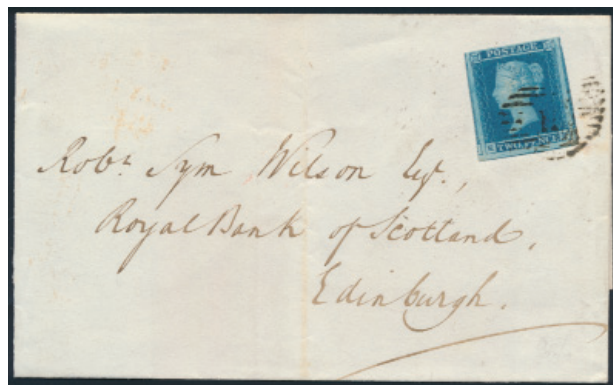 POSTAGE
TWO PENCE
Robt Sym Wilson Esqr.,
Royal Bank of Scotland,
Edinburgh.